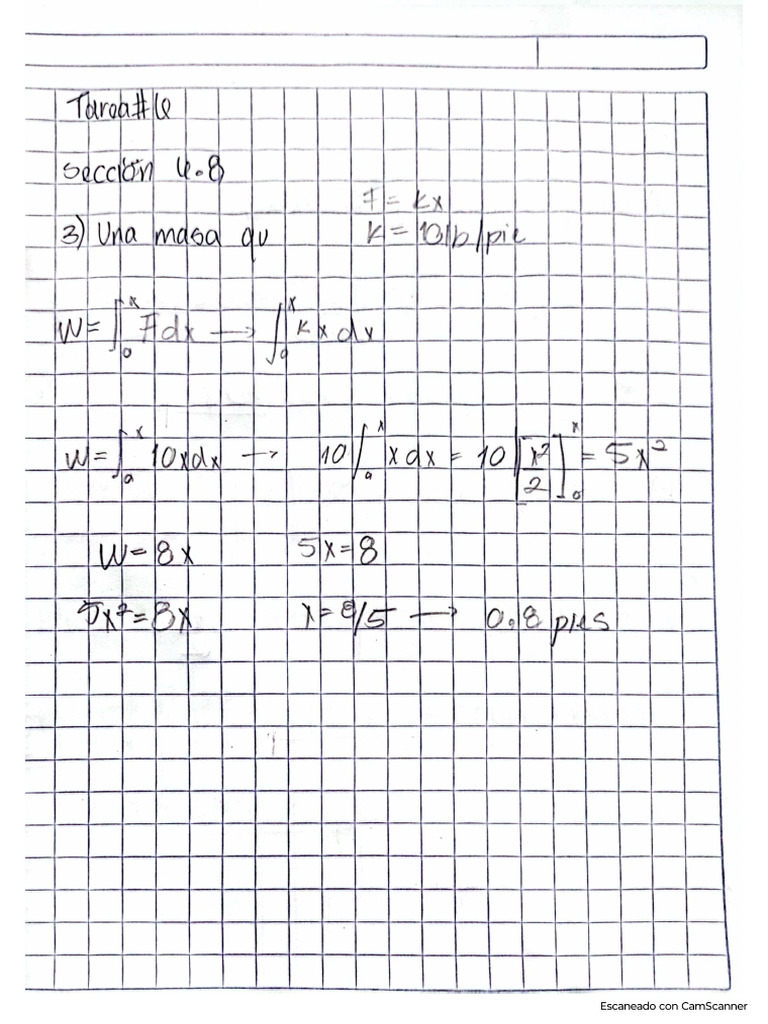 Tarea#6
sección 4.8
3) Una masa qu
F = kx
k = 10lb/pie
W = ∫₀ˣ Fdx → ∫₀ˣ kx dx
W = ∫₀ˣ 10xdx → 10∫₀ˣ xdx = 10[x²/2]₀ˣ = 5x²
W = 8x 5x = 8
5x² = 8x x = 8/5 → 0.8 pies
Escaneado con CamScanner